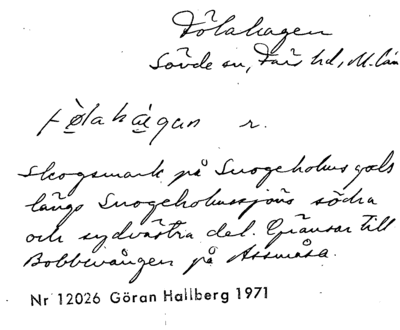 Fölahagen
Sövde sn, Färs hd, M. län
fø̀lahá̱gan r.
Skogsmark på Snogeholms gods
längs Snogeholmssjöns södra
och sydvästra del. Gränsar till
Bobbevången på Assmåsa.
Nr 12026 Göran Hallberg 1971